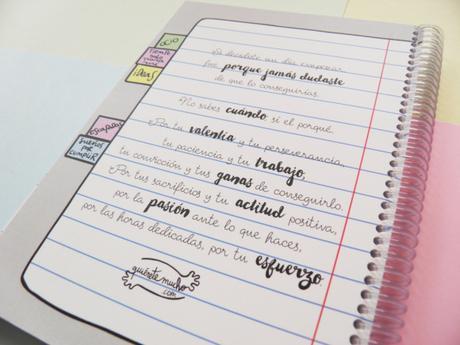 Si decidiste un día empezar
fue porque jamás dudaste
de que lo conseguirías.
No sabes cuándo, si el porqué.
Por tu valentía y tu perseverancia,
tu paciencia y tu trabajo,
tu convicción y tus ganas de conseguirlo.
Por tus sacrificios y tu actitud positiva,
por la pasión ante lo que haces,
por las horas dedicadas, por tu esfuerzo.
quiérete mucho
.com
ideas
escapadas
sueños
por
cumplir